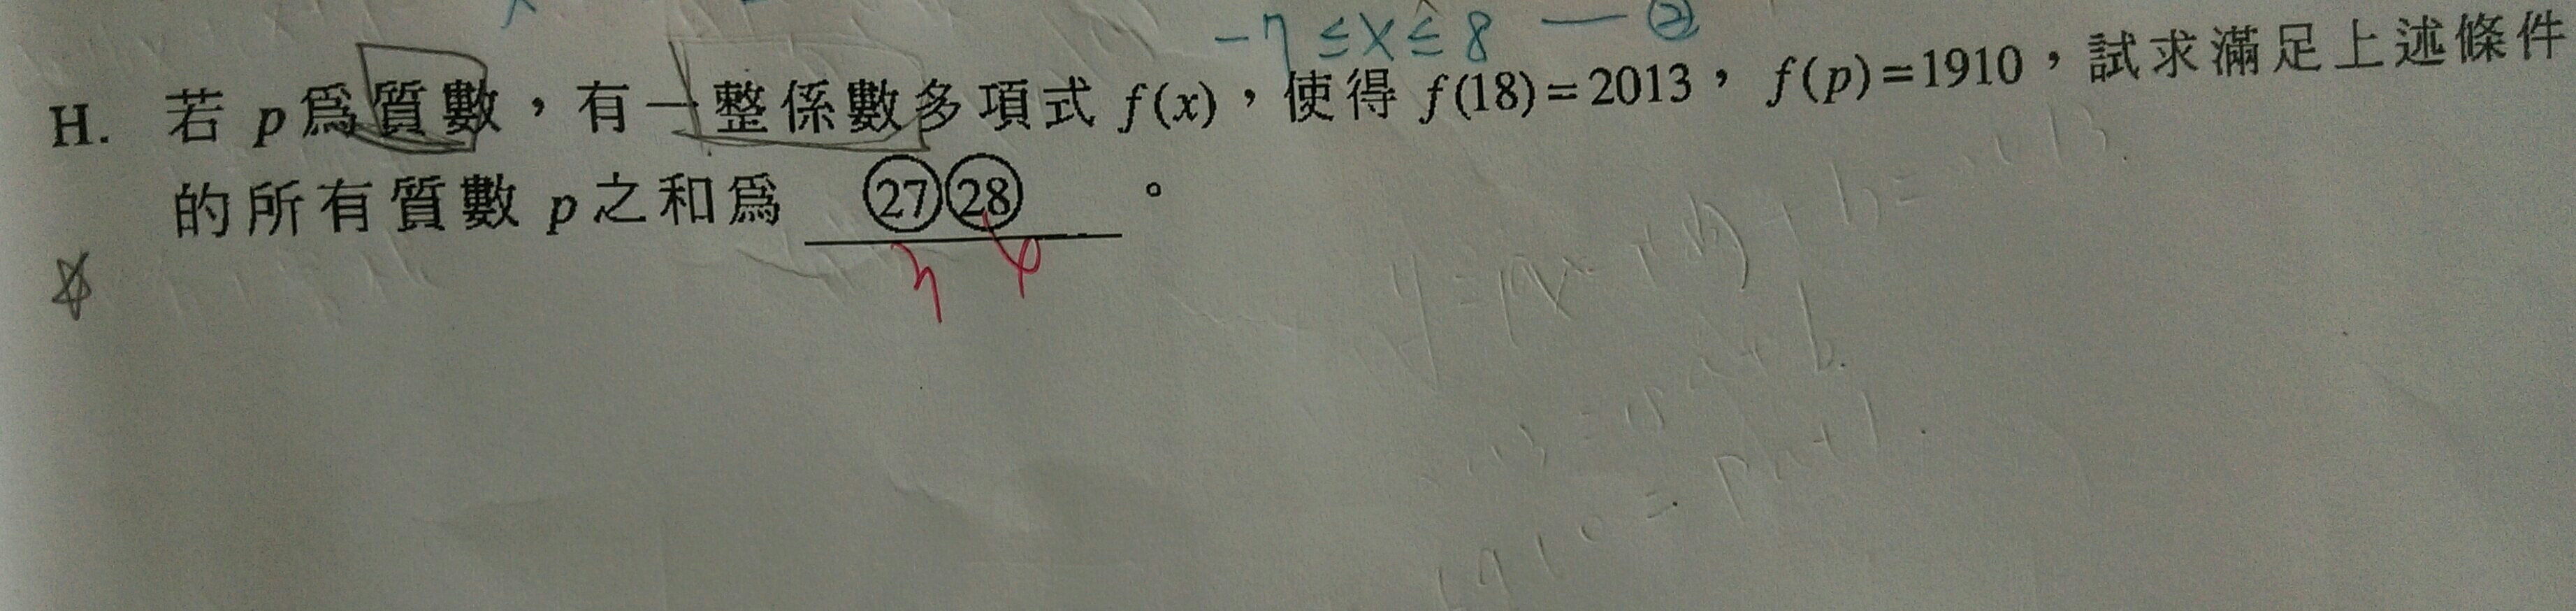 -7≤x≤8 — ②
H. 若 p 爲質數，有一整係數多項式 f(x)，使得 f(18)=2013，f(p)=1910，試求滿足上述條件
的所有質數 p 之和爲 ㉗㉘ 。
7 4